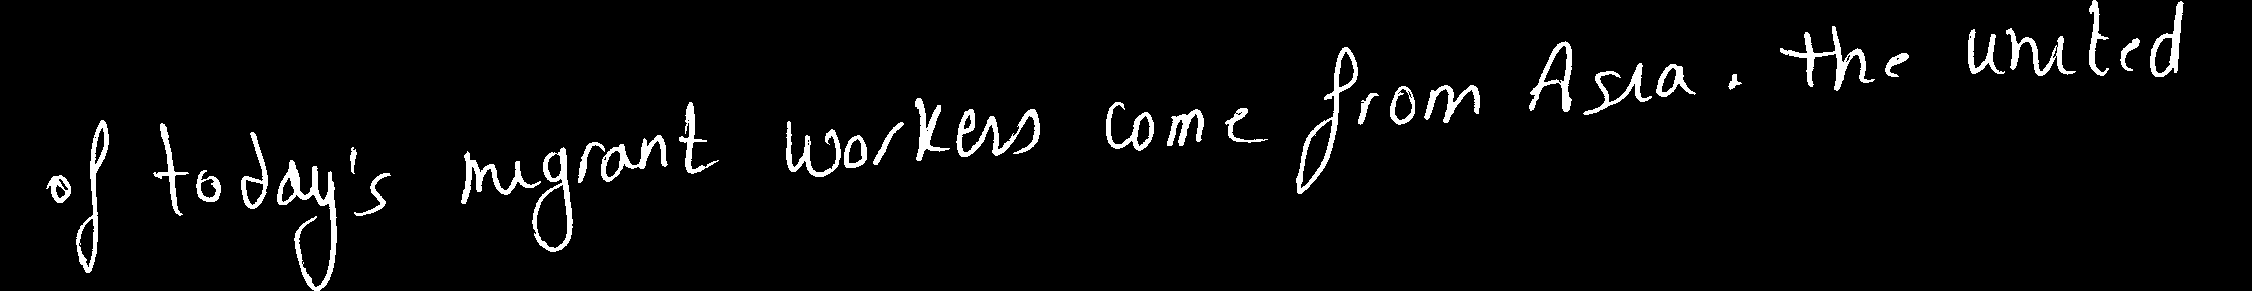 of today's migrant workers come from Asia. the united